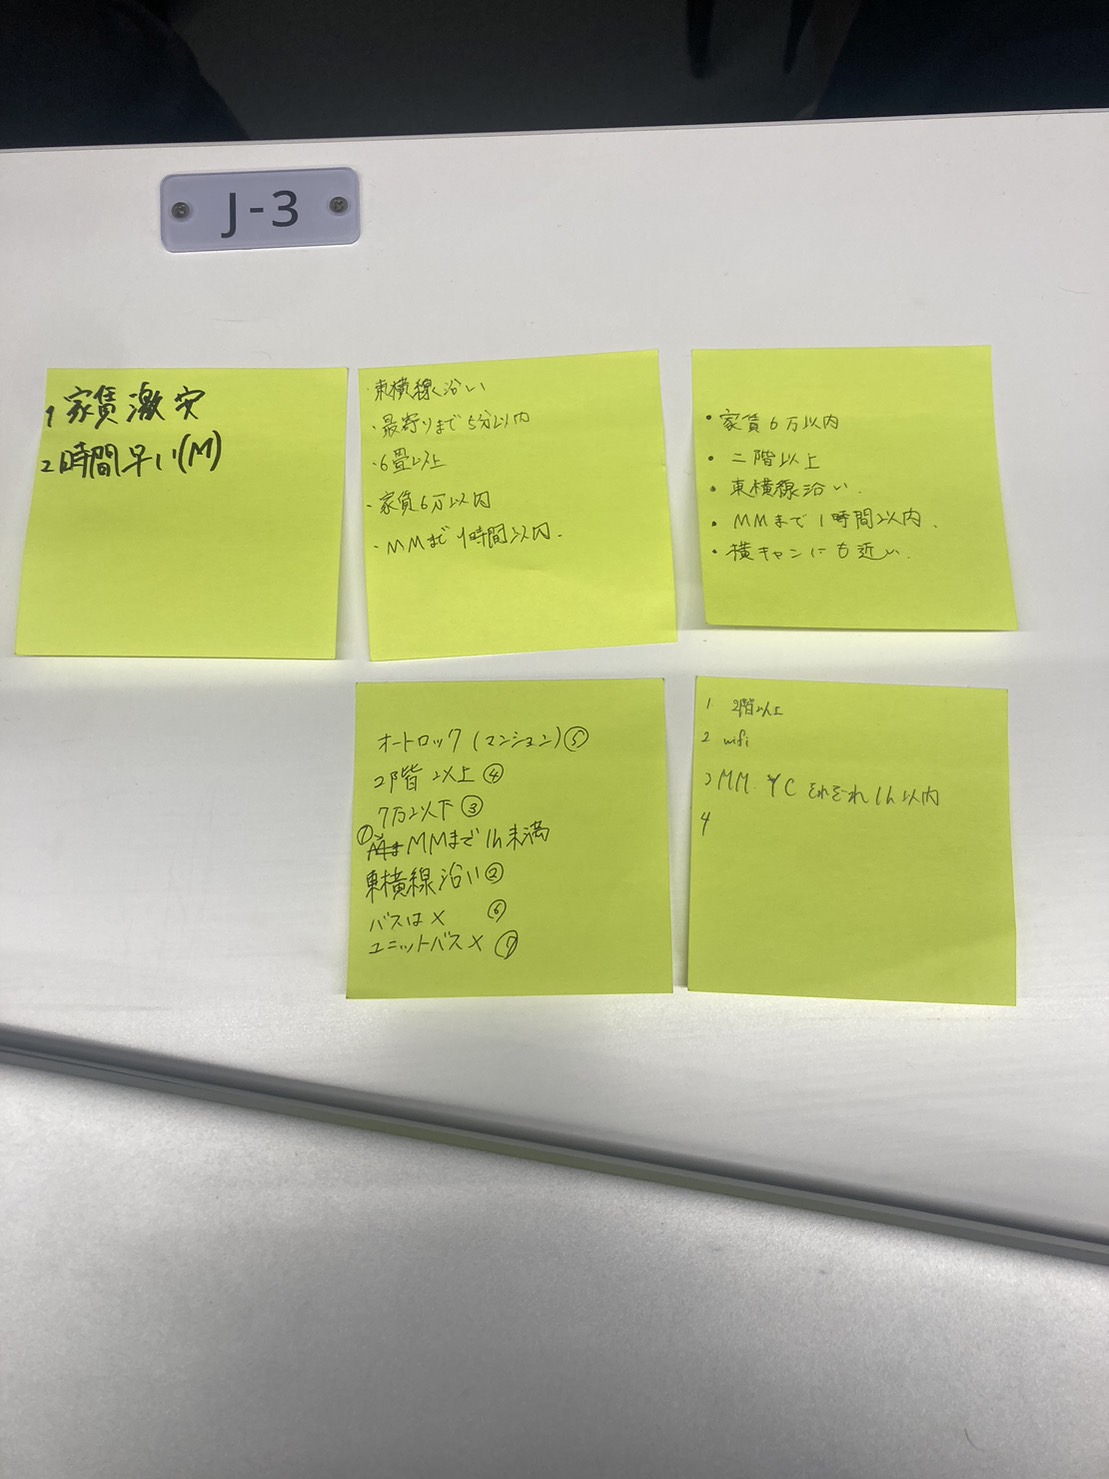 J-3
1 家賃激安
2 時間早い(M)
・東横線沿い
・最寄りまで5分以内
・6畳以上
・家賃6万以内
・MMまで1時間以内.
・家賃6万以内
・二階以上
・東横線沿い.
・MMまで1時間以内.
・横キャンにも近い.
オートロック(マンション)⑤
2階以上④
7万以下③
① MMまで1h未満
東横線沿い②
バスは× ⑥
ユニットバス× ⑦
1 2階以上
2 wifi
3 MM. YC それぞれ1h以内
4